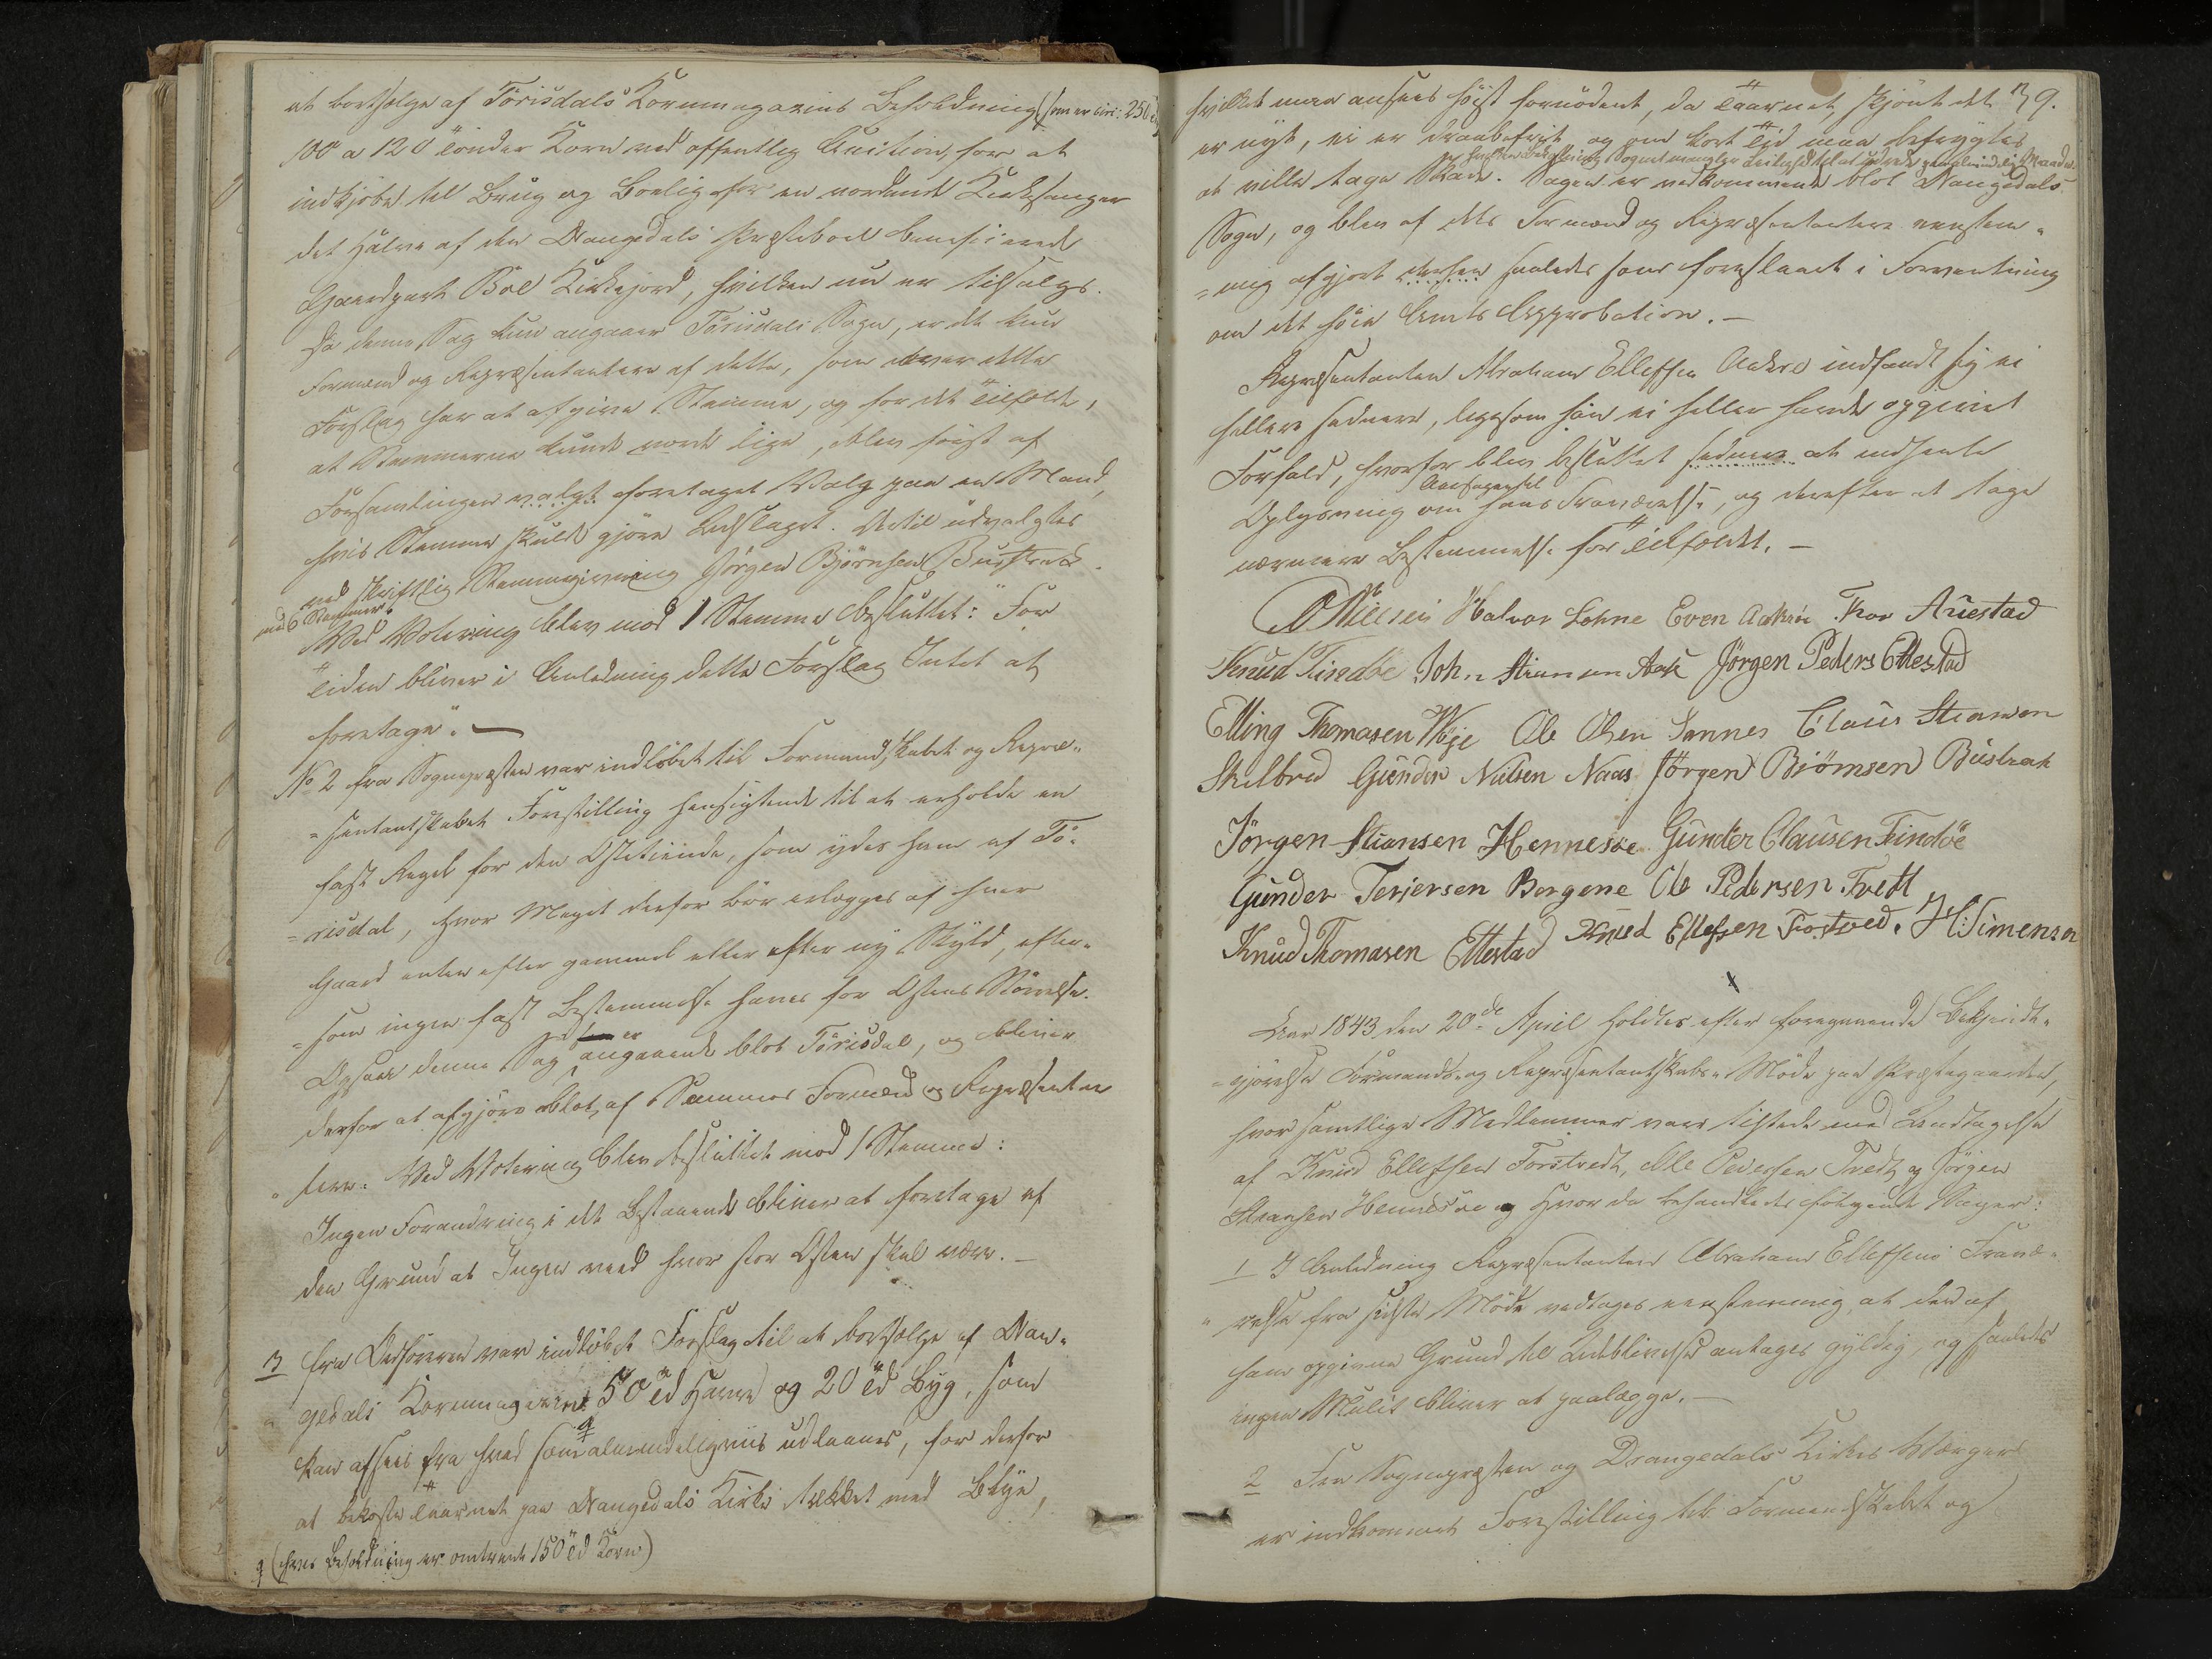 at bortsælge af Törisdals Kornmagazins Beholdning (som er circ: 250
100 a 120 Tönder Korn ved offentlig Auction, for at
indkjöbe til Brug og Bolig for en vordende Kirkesanger
det Halve af den Drangedals Præstebord beneficerede
Gaardpart Böe Kirkejord, hvilken nu er tilsalgs.
Da denne Sag kun angaaer Törisdals Sogn, er det kun
Formænd og Repræsentantere af dette, som over dette
Forslag har at afgive Stemme, og for det Tilfælde,
at Stemmerne kunde vorde lige, blev först af
Forsamlingen valgt foretaget Valg paa en Mand,
hvis Stemme skulde gjöre Udslaget. Dertil udvalgtes
ved skriftlig Stemmegivning Jörgen Björnsen Bustrak
med 6 Stemmer.
Ved Votering blev mod 1 Stemme besluttet: "For
Tiden bliver i Anledning dette Forslag Intet at
foretage". —
No 2 fra Sognepræsten var indlöbet til Formandskabet og Repræ-
sentantskabet Forestilling hensigtende til at erholde en
fast Regel for den Ostetiende, som ydes ham af Tö-
risdal, hvor Meget derfor bör erlægges af hver
Gaard enten efter gammel eller efter ny Skyld, efter-
som ingen fast Bestemmelse haves for Ostens Störrelse.
Ogsaa denne Sag er angaaende blot Törisdal, og bliver
derfor at afgjöre blot af Sammes Formænd og Repræsentan
tere. Ved Votering blev besluttet mod 1 Stemme:
Ingen Forandring i det Bestaaende bliver at foretage af
den Grund at Ingen veed hvor stor Osten skal være. —
3 fra Opsynet var indlöbet Forslag til at bortsælge af Dran-
gedals Kornmagazin 50 Td Havre og 20 Td Byg, som
kan afsees fra hvad som almindeligviis udlaanes, for derfor
at bekoste Taarnet paa Drangedals Kirke tækket med Blye,
(hvis Beholdning er omtrent 150 Td Korn)
39.
hvilket maa ansees höist fornödent, da Taarnet, skjönt det
er nyt, ei er draabefrit og om kort Tid maa befrygtes
at ville tage Skade. Sagen er vedkommende blot Drangedals
Sogn, og blev af dets Formænd og Repræsentantere eenstem-
mig afgjort saaledes som foreslaaet i Forventning
om det höie Amts Approbation. —
Repræsentanten Abraham Ellefsen Aakre indfandt sig ei
heller sednere, ligesom han ei heller havde opgivet
Forfald, hvorfor blev besluttet sednere at indhente
Oplysning om hans Fraværelse, og derefter at tage
nærmere Bestemmelse for Tilfældet. —
Nielsen Halvor Lohne Even Aakre Thor Auestad
Knud Tindöe Joh. Stiansen Aase Jörgen Peders Ettestad
Elling Thomasen Woje Ole Olsen Sannes Claus Stiansen
Skelbred Gunder Nielsen Naas Jörgen Björnsen Bustrak
Jörgen Stiansen Hennesöe Gunder Clausen Tindöe
Gunder Terjersen Borgene Ole Pedersen Tvett
Knud Thomasen Ettestad Knud Ellefsen Forstved. H. Simensen
Aar 1843 den 20de April holdtes efter foregaaende Bekjendt-
gjörelse Formands- og Repræsentantskabs-Möde paa Præstegaarden,
hvor samtlige Medlemmer vare tilstede med Undtagelse
af Knud Ellefsen Forstvedt, Ole Pedersen Tvedt og Jörgen
Stiansen Hennesöe og hvor da behandledes fölgende Sager:
1 I Anledning Repræsentanten Abraham Ellefsens Fravæ-
relse fra sidste Möde vedtages eenstemmig, at den af
ham opgivne Grund til Udeblivelse antages gyldig, og saaledes
ingen Mulct bliver at paalægge. —
2 Fra Sognepræsten og Drangedals Kirkes Værger
er indkommet Forestilling til Formandskabet og